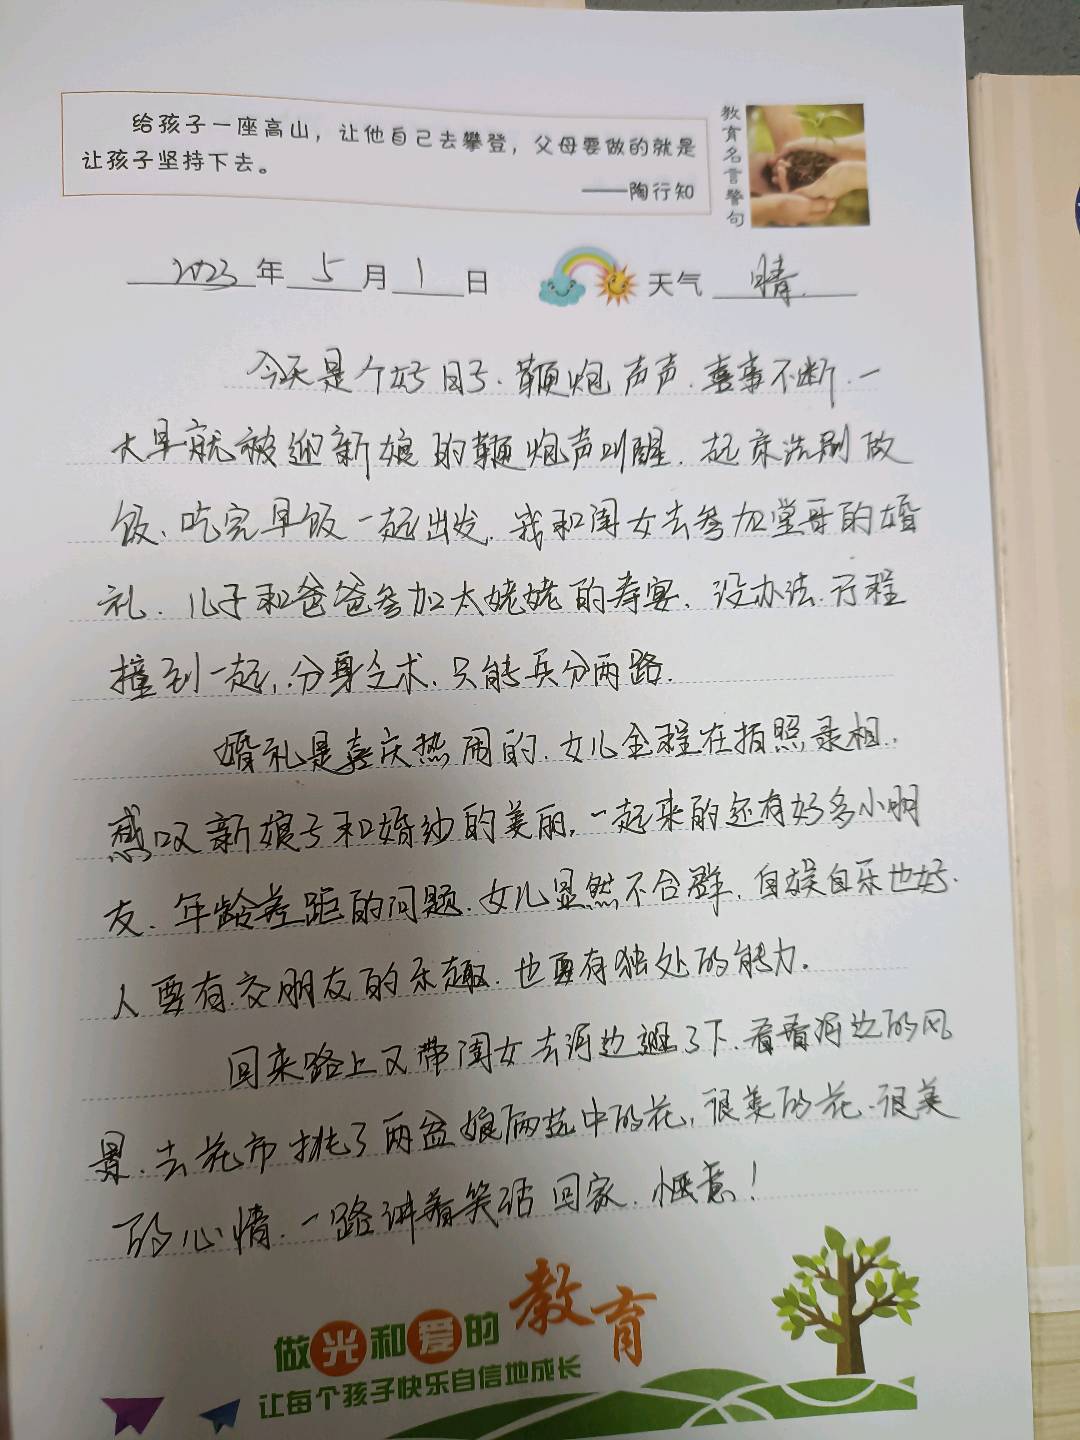 给孩子一座高山，让他自己去攀登，父母要做的就是
让孩子坚持下去。
——陶行知
教育名言警句
2023年5月1日 天气 晴.
今天是个好日子.鞭炮声声.喜事不断.一
大早就被迎新娘的鞭炮声叫醒.起床洗刷做
饭、吃完早饭一起出发.我和闺女去参加堂哥的婚
礼.儿子和爸爸参加太姥姥的寿宴.没办法.行程
撞到一起,分身乏术.只能兵分两路.
婚礼是喜庆热闹的.女儿全程在拍照录相.
感叹新娘子和婚纱的美丽,一起来的还有好多小朋
友.年龄差距的问题.女儿显然不合群.自娱自乐也好.
人要有交朋友的乐趣.也要有独处的能力.
回来路上又带闺女去河边遛了下.看看河边的风
景.去花市挑了两盆娘俩选中的花,很美的花.很美
的心情.一路讲着笑话回家.惬意!
做光和爱的教育
让每个孩子快乐自信地成长